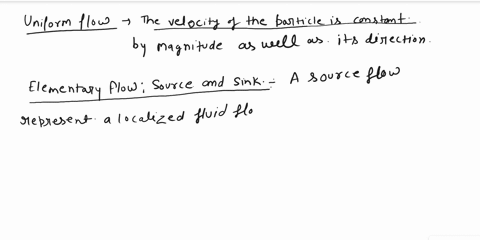 Uniform flow → The velocity of the particle is constant.
by magnitude as well as its direction.
Elementary flow; Source and Sink :- A source flow
represent a localized fluid flo